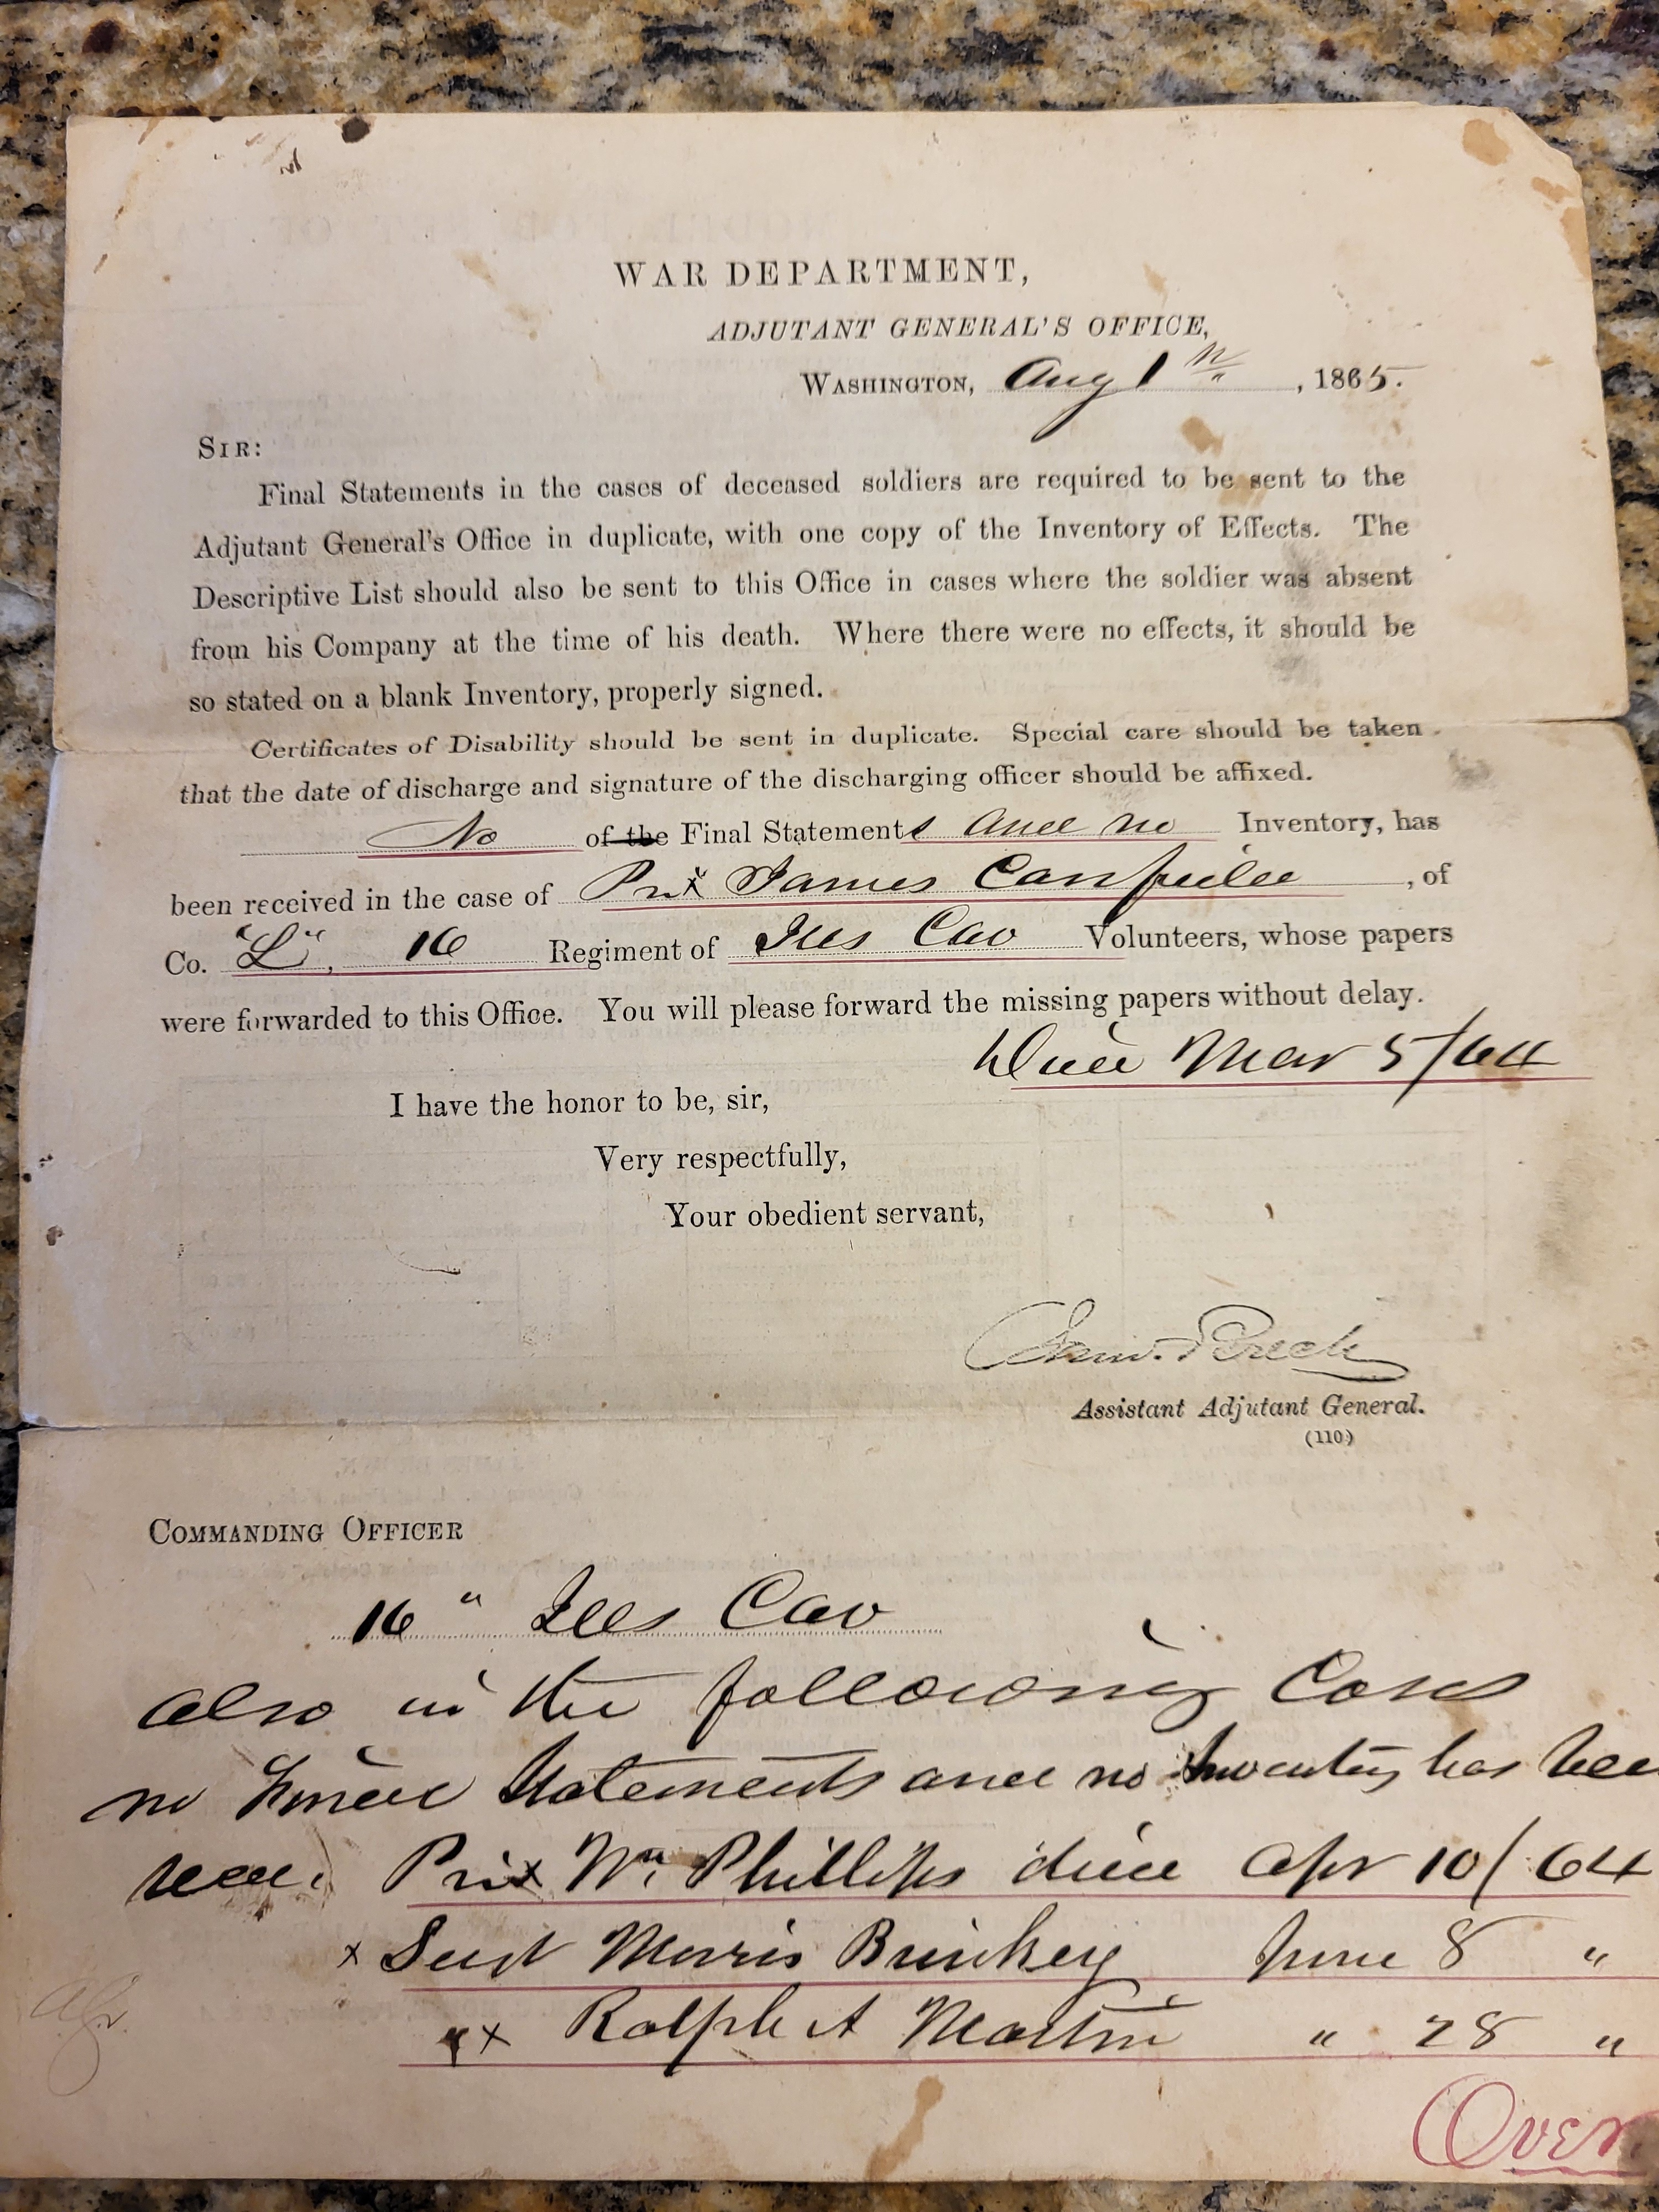 WAR DEPARTMENT,
ADJUTANT GENERAL'S OFFICE,
WASHINGTON, Aug 1st, 1865.
SIR:
Final Statements in the cases of deceased soldiers are required to be sent to the
Adjutant General's Office in duplicate, with one copy of the Inventory of Effects. The
Descriptive List should also be sent to this Office in cases where the soldier was absent
from his Company at the time of his death. Where there were no effects, it should be
so stated on a blank Inventory, properly signed.
Certificates of Disability should be sent in duplicate. Special care should be taken
that the date of discharge and signature of the discharging officer should be affixed.
No of the Final Statements and no Inventory, has
been received in the case of Priv James Canfield, of
Co. "L", 16 Regiment of Ills Cav Volunteers, whose papers
were forwarded to this Office. You will please forward the missing papers without delay.
Died Mar 5/64
I have the honor to be, sir,
Very respectfully,
Your obedient servant,
Saml. Breck
Assistant Adjutant General.
(110)
COMMANDING OFFICER
16" Ills Cav
also in the following Cases
no Final Statements and no Inventory has bee
recd. Priv Wm Phillips died Apr 10/64
x Sergt Morris June 8 "
" x Ralph A Martin " 28 "
Over